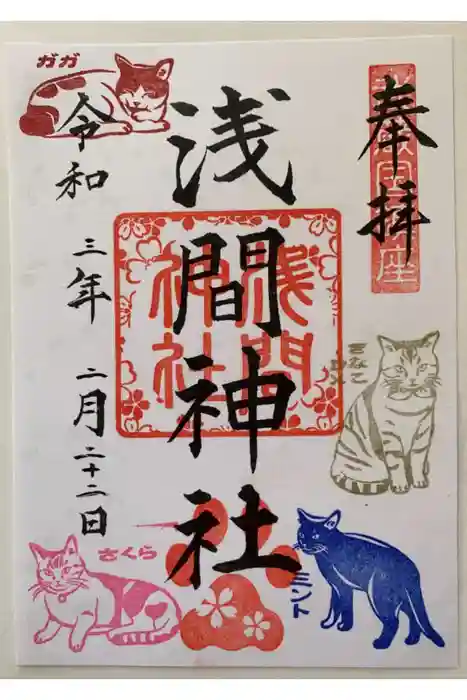 奉拝
浅間神社
浅間
神社
令和三年二月二十二日
ガガ
きなこ
さくら
ミント
座